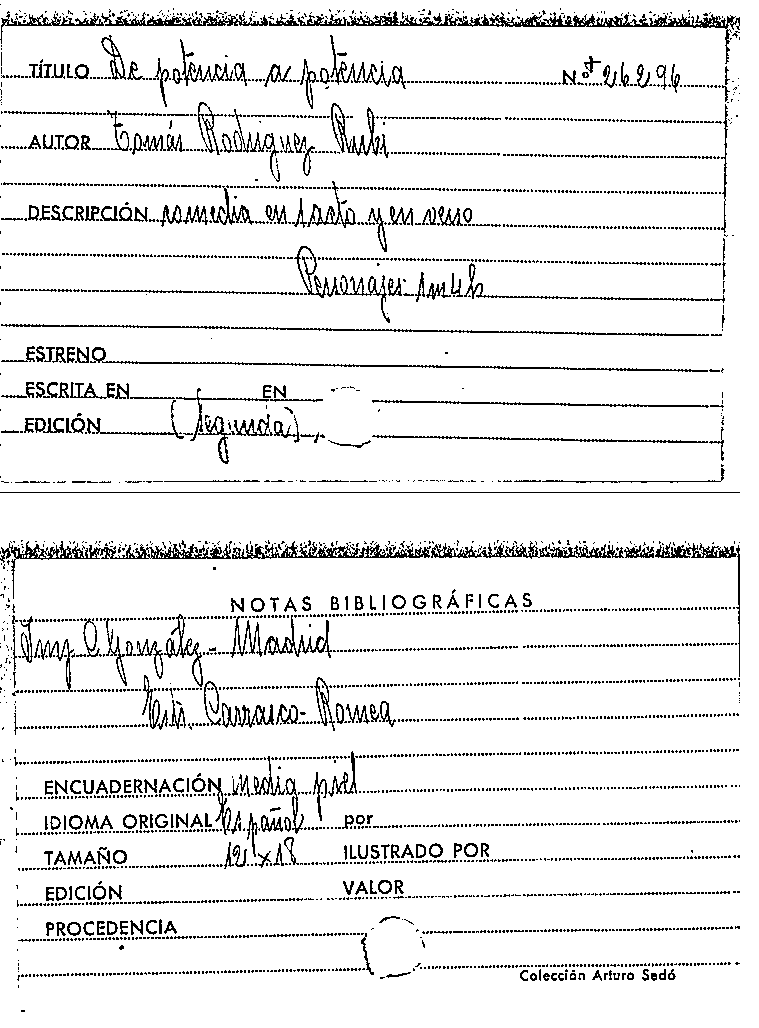 TÍTULO De potencia a potencia Nº 26296
AUTOR Tomás Rodriguez Rubi
DESCRIPCIÓN comedia en 1 acto y en verso
Personajes: 1m4h
ESTRENO
ESCRITA EN EN
EDICIÓN (Segunda),
NOTAS BIBLIOGRÁFICAS
Imp C González - Madrid
Carrasco - Romea
ENCUADERNACIÓN media piel
IDIOMA ORIGINAL Español por
TAMAÑO 12 x 18 ILUSTRADO POR
EDICIÓN VALOR
PROCEDENCIA
Colección Arturo Sedó